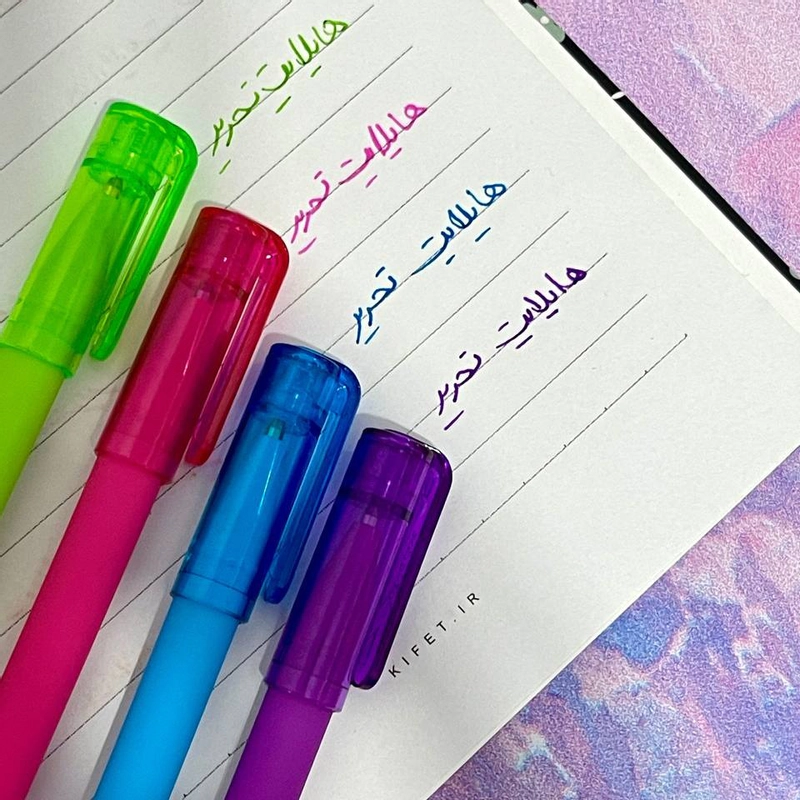 هایلایت تحریر
هایلایت تحریر
هایلایت تحریر
هایلایت تحریر
KIFET.IR